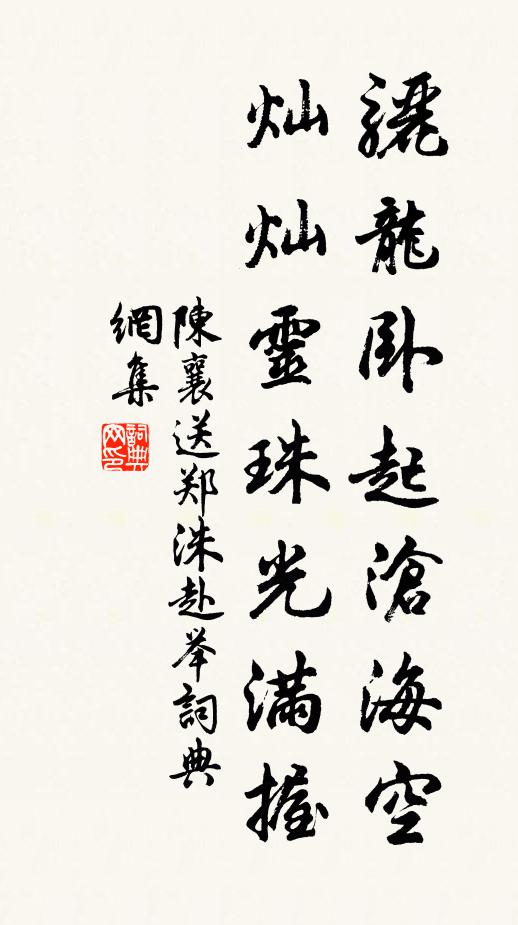 驪龍卧起滄海空
灿灿靈珠光满握
陳襄送郑洙赴举詞典
網集
詞典
网印